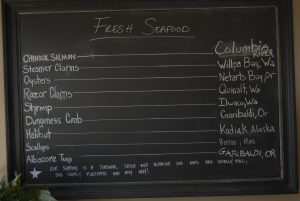 Fresh Seafood
Chinook Salmon Columbia River
Steamer Clams Willpa Bay, Wa
Oysters Netarts Bay, Or
Razor Clams Quinalt, Wa
Shrimp Ilwaco, Wa
Dungeness Crab Garibaldi, Or
Halibut Kodiak Alaska
Scallops Boston, Mass
Albacore Tuna Garibaldi, OR
Our seafood is a seasonal